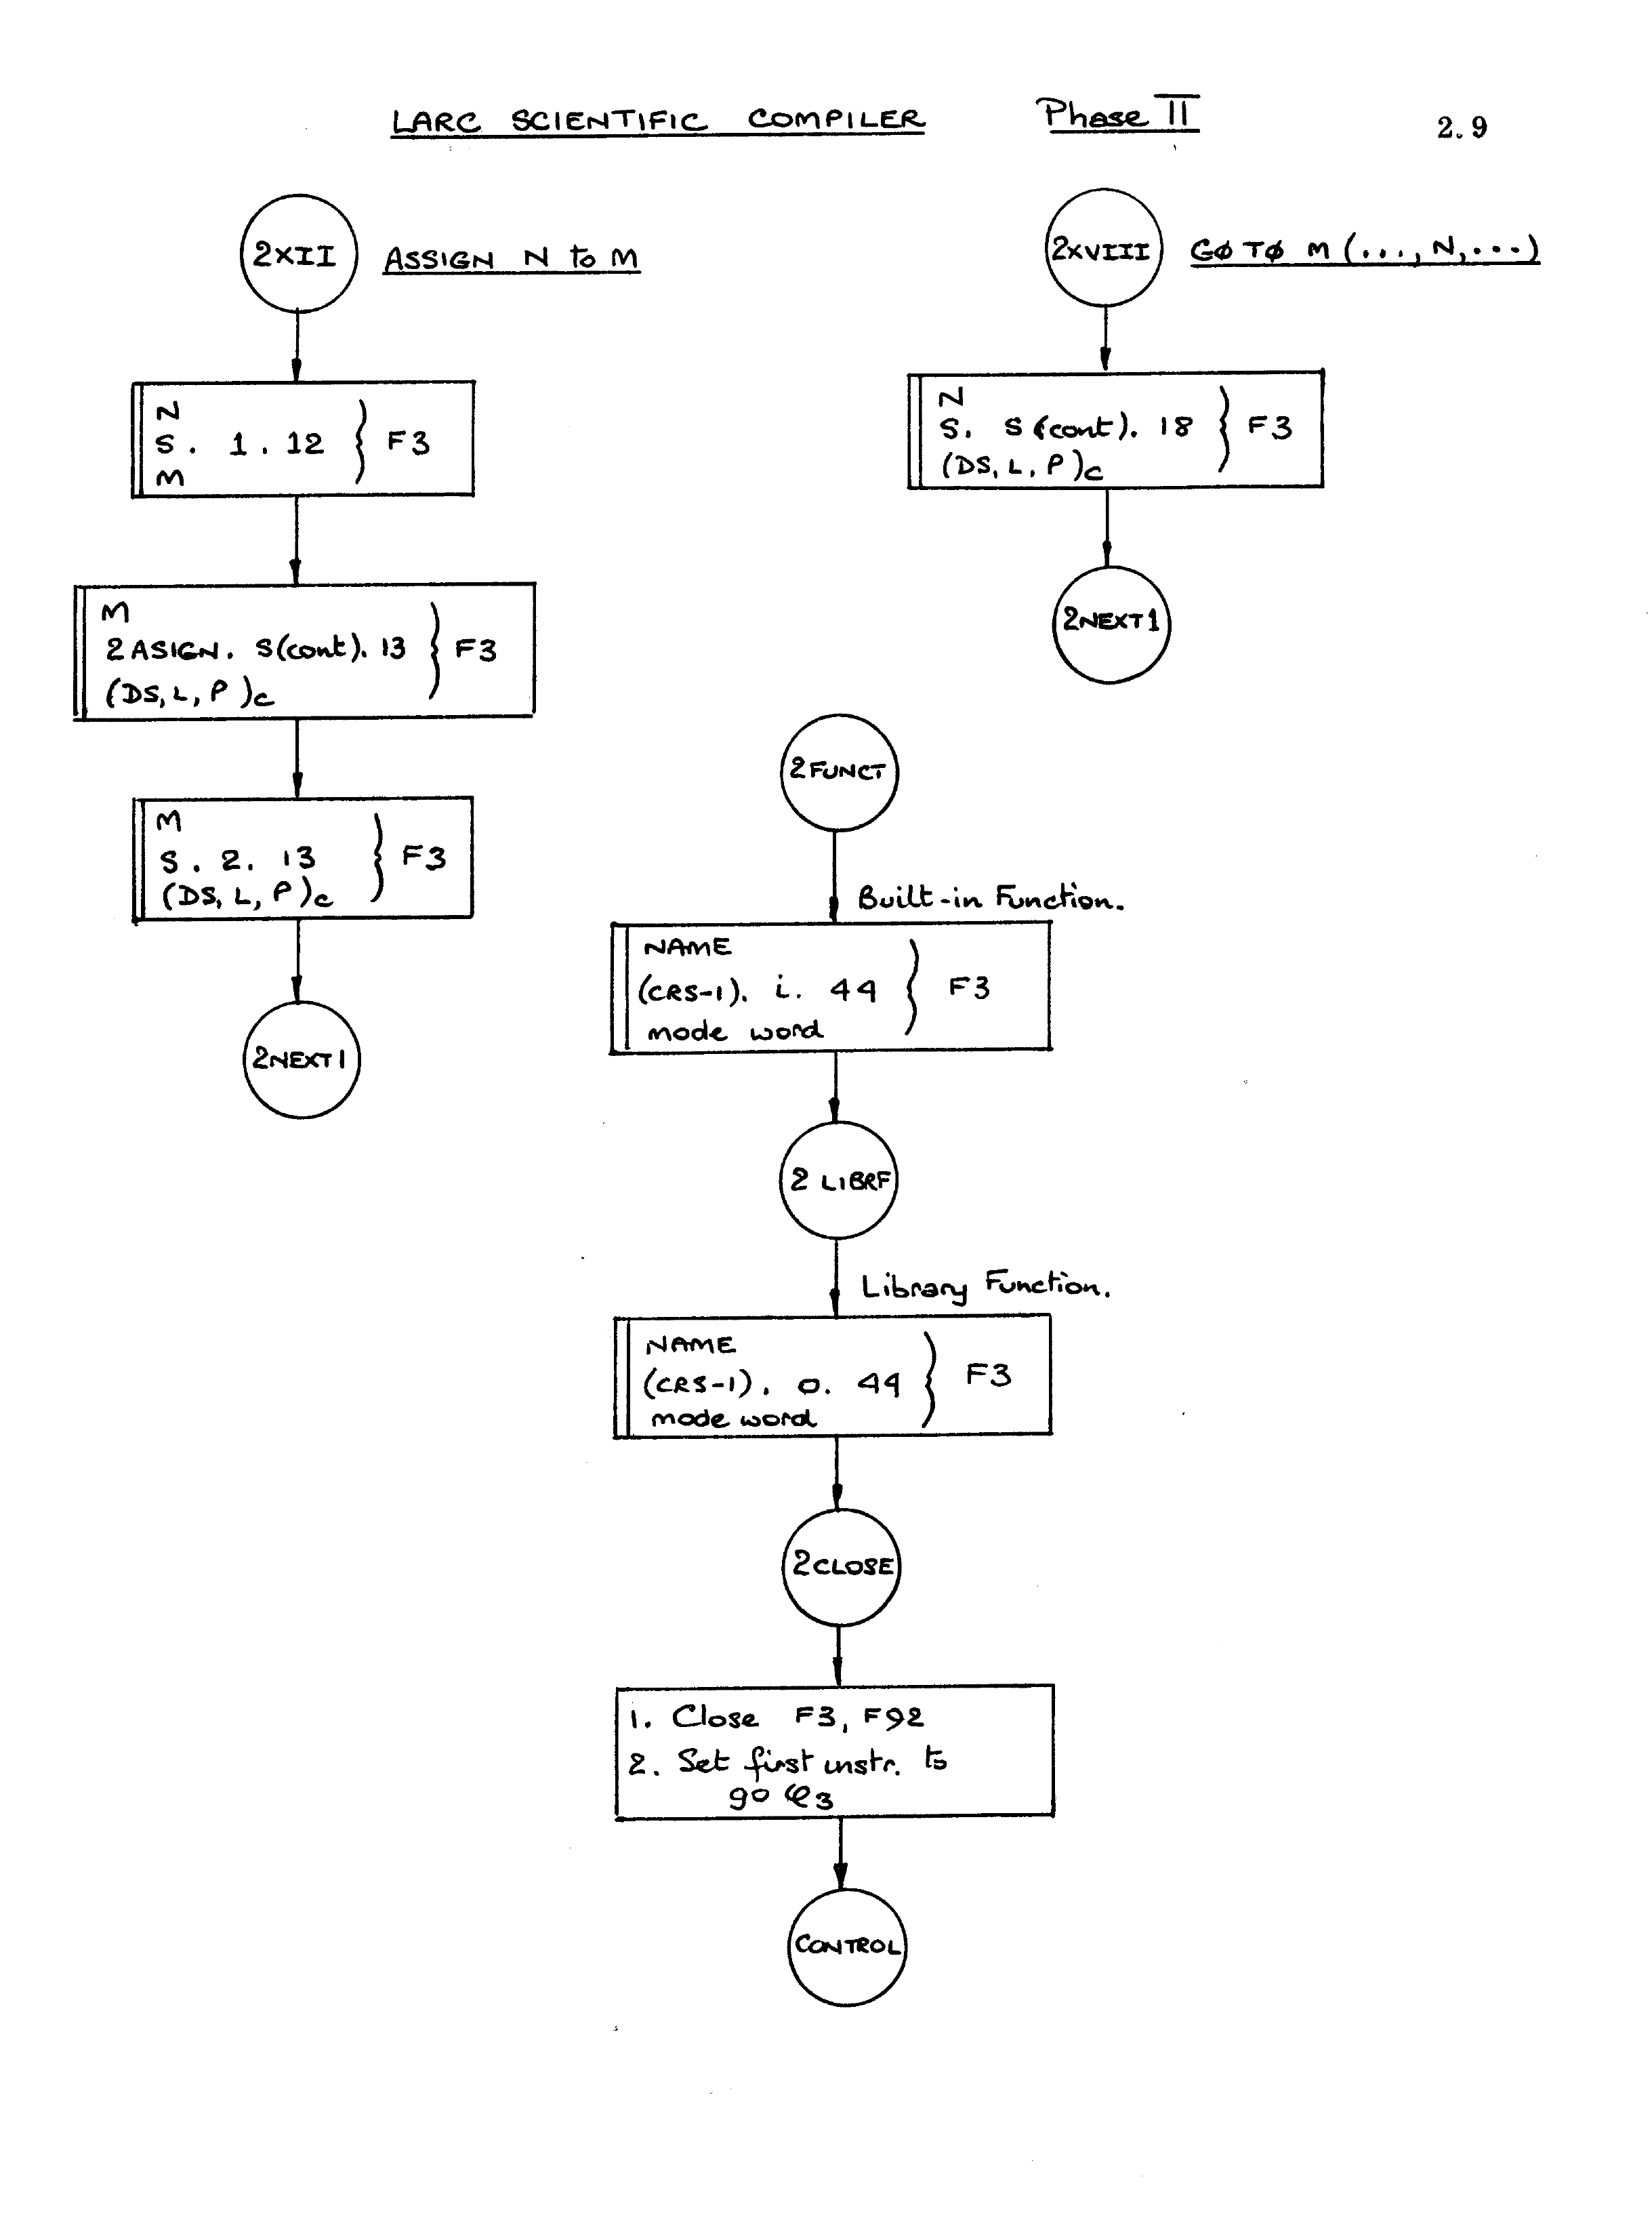 LARC SCIENTIFIC COMPILER Phase II 2.9
2XII ASSIGN N to M
N
S. 1. 12 } F3
M
M
2ASIGN. S(cont). 13 } F3
(DS, L, P)c
M
S. 2. 13 } F3
(DS, L, P)c
2NEXT1
2XVIII GØ TØ M (..., N, ...)
N
S. S(cont). 18 } F3
(DS, L, P)c
2NEXT1
2FUNCT
Built-in Function.
NAME
(CRS-1). i. 44 } F3
mode word
2 LIBRF
Library Function.
NAME
(CRS-1). 0. 44 } F3
mode word
2CLOSE
1. Close F3, F92
2. Set first instr. to
go φ3
CONTROL